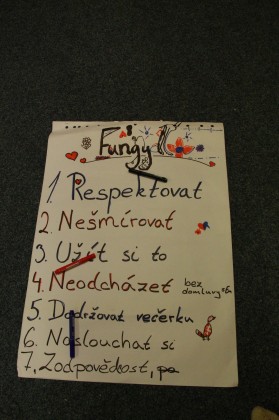 Fungujl
1. Respektovat
2. Nešmírovat
3. Užít si to
4. Neodcházet bez domluvy
5. Dodržovat večerku
6. Naslouchat si
7. Zodpovědost,